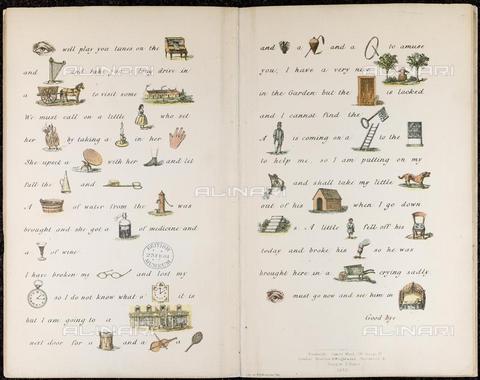 will play you tunes on the
and and take you a long drive in
a to visit some
We must call on a little who set
her by taking a in her
She upset a with her and let
fall the and
A of water from the was
brought and she got a of medicine and
a of wine
I have broken my and lost my
so I do not know what o' it is
but I am going to a
next door for a and a
and a and a to amuse
you. I have a very nice
in the Garden but the is locked
and I cannot find the
A is coming on a to the
to help me, so I am putting on my
and shall take my little
out of his when I go down
s. A little fell off his
today and broke his so he was
brought here in a crying sadly
must go now and see him in
Good bye
BRITISH
MUSEUM
ALINARI
ALINARI
ALINARI
ALINARI